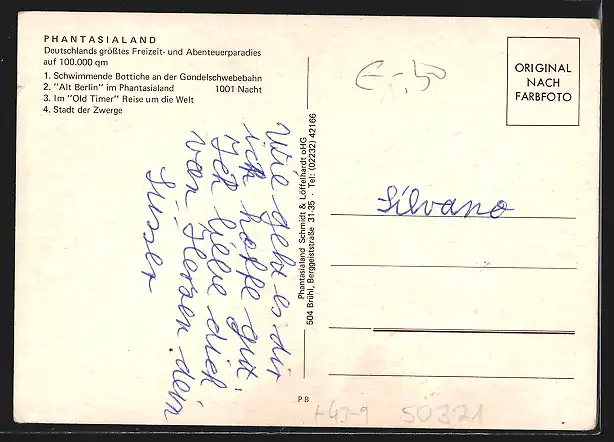 PHANTASIALAND
Deutschlands größtes Freizeit- und Abenteuerparadies
auf 100.000 qm
1. Schwimmende Bottiche an der Gondelschwebebahn
2. "Alt Berlin" im Phantasialand 1001 Nacht
3. Im "Old Timer" Reise um die Welt
4. Stadt der Zwerge
Wie geht es dir
ich hoffe gut.
Ich liebe dich
von Herzen dein
Susser
Phantasialand Schmidt & Löffelhardt oHG
504 Brühl, Berggeiststraße 31-35 · Tel: (02232) 42166
€-,50
ORIGINAL
NACH
FARBFOTO
Silvano
P 8
50321